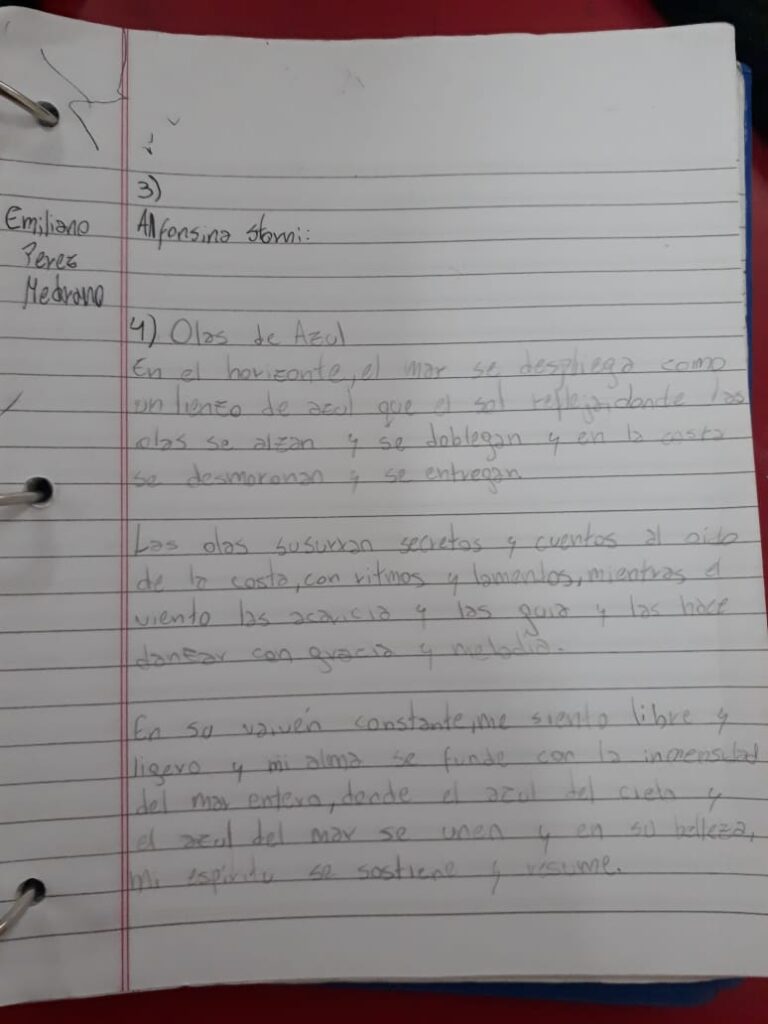 3)
Emiliano
Perez
Medrano
Alfonsina Storni:
4) Olas de Azul
En el horizonte, el mar se despliega como
un lienzo de azul que el sol refleja, donde las
olas se alzan y se doblegan y en la costa
se desmoronan y se entregan.
Las olas susurran secretos y cuentos al oido
de la costa, con ritmos y lamentos, mientras el
viento las acaricia y las guia y las hace
danzar con gracia y melodia.
En su vaivén constante, me siento libre y
ligero y mi alma se funde con la inmensidad
del mar entero, donde el azul del cielo y
el azul del mar se unen y en su belleza,
mi espiritu se sostiene y resume.